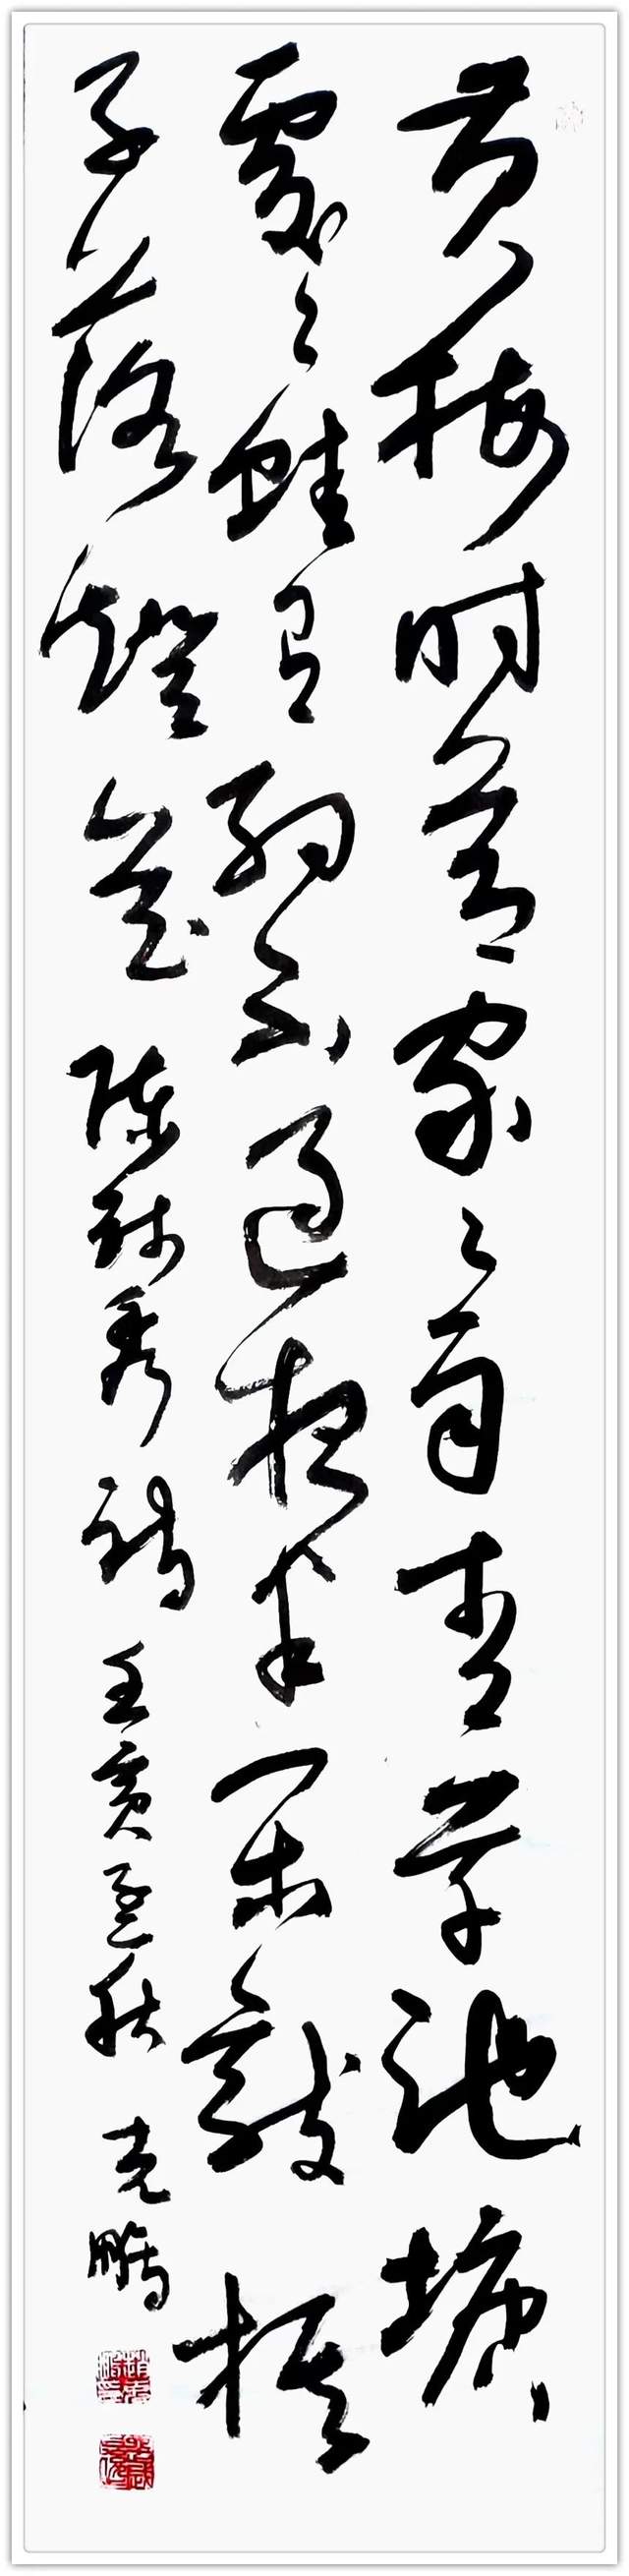 黄梅时节家々雨青草池塘
處々蛙有约不过夜半闲敲棋
子落燈花 陈师秀诗 壬寅孟秋 克鹏